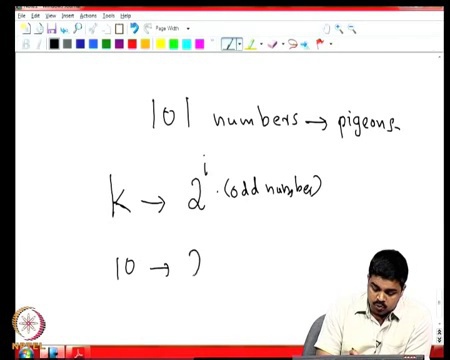 File Edit View Insert Actions Tools Help
Page Width
B
101 numbers → pigeons.
K → 2^i . (odd number)
10 → 2